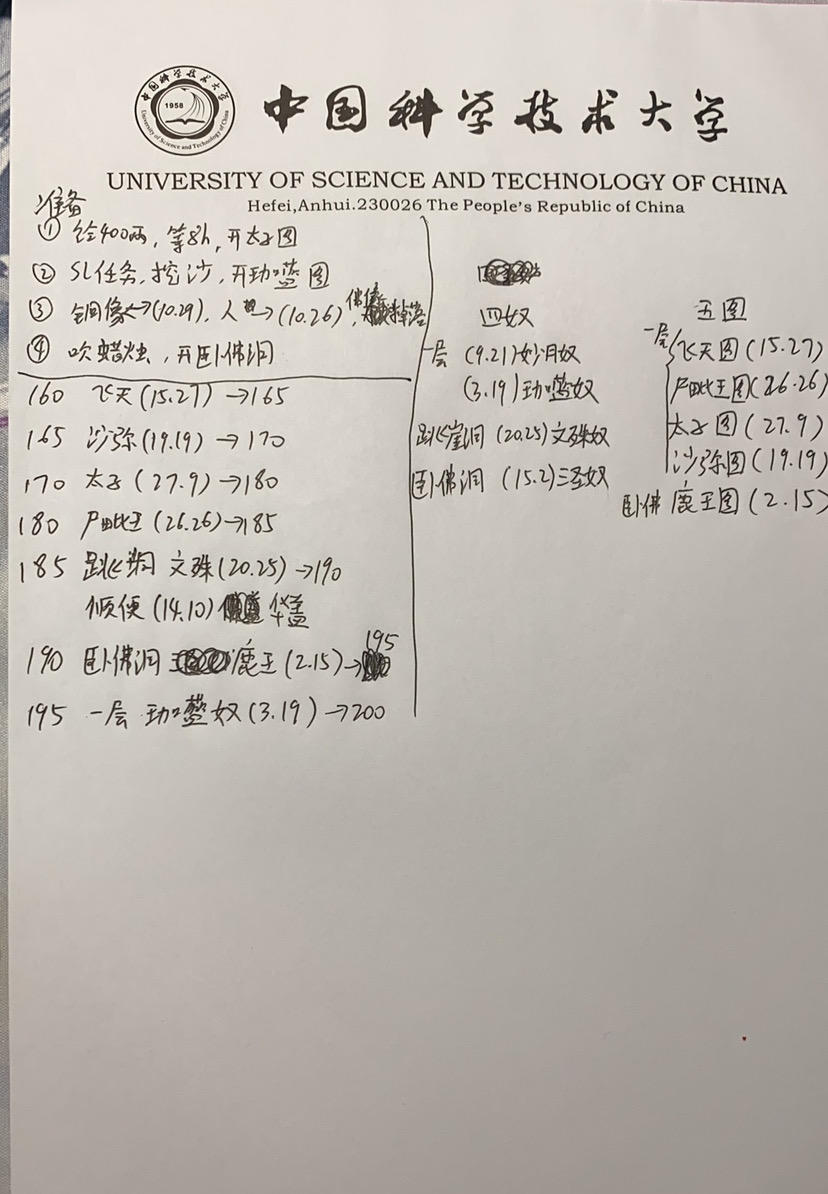 中国科学技术大学
1958
University of Science and Technology of China
中国科学技术大学
UNIVERSITY OF SCIENCE AND TECHNOLOGY OF CHINA
Hefei,Anhui.230026 The People's Republic of China
准备
① 给400两，等8h，开太子图
② SL任务，挖沙，开劫嗌图
③ 铜像<->(10.29)，人->(10.26)
④ 吹蜡烛，开卧佛洞
160 飞天(15.27)->165
165 沙弥(19.19)->170
170 太子(27.9)->180
180 尸毗王(26.26)->185
185 跳崖洞 文殊(20.25)->190
顺便(14.10) 华盖
190 卧佛洞 鹿王(2.15)->195
195 一层 劫嗌奴(3.19)->200
四奴
一层 (9.21)妙月奴
(3.19)劫嗌奴
跳崖洞 (20.25)文殊奴
卧佛洞 (15.2)三圣奴
五图
一层 飞天图(15.27)
尸毗王图(26.26)
太子图(27.9)
沙弥图(19.19)
卧佛 鹿王图(2.15)